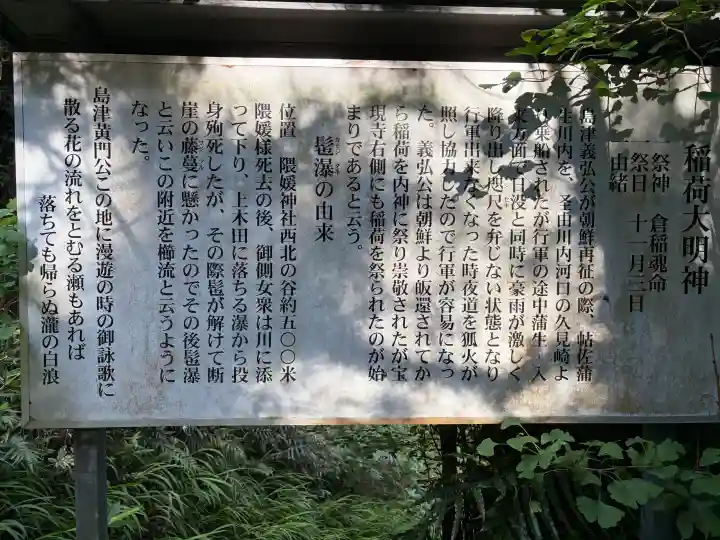 稲荷大明神
祭神 倉稲魂命
祭日 十一月三日
由緒
島津義弘公が朝鮮再征の際、帖佐蒲
生川内を、圣由川内河口の久見崎よ
り乗船されたが行軍の途中蒲生、入
来方面で日没と同時に豪雨が激しく
降り出し咫尺を弁じない状態となり
行軍出来なくなった時夜道を狐火が
照し協力したので行軍が容易になっ
た。義弘公は朝鮮より皈還されてか
ら稲荷を内神に祭り崇敬されたが宝
現寺右側にも稲荷を祭られたのが始
まりであると云う。
髢瀑の由来
位置 隈媛神社西北の谷約五〇〇米
隈媛様死去の後、御側女衆は川に添
って下り、上木田に落ちる瀑から投
身殉死したが、その際髢が解けて断
崖の藤蔓に懸かったのでその後髢瀑
と云いこの附近を櫛流と云うように
なった。
島津黄門公この地に漫遊の時の御詠歌に
散る花の流れをとむる瀬もあれば
落ちても帰らぬ瀧の白浪